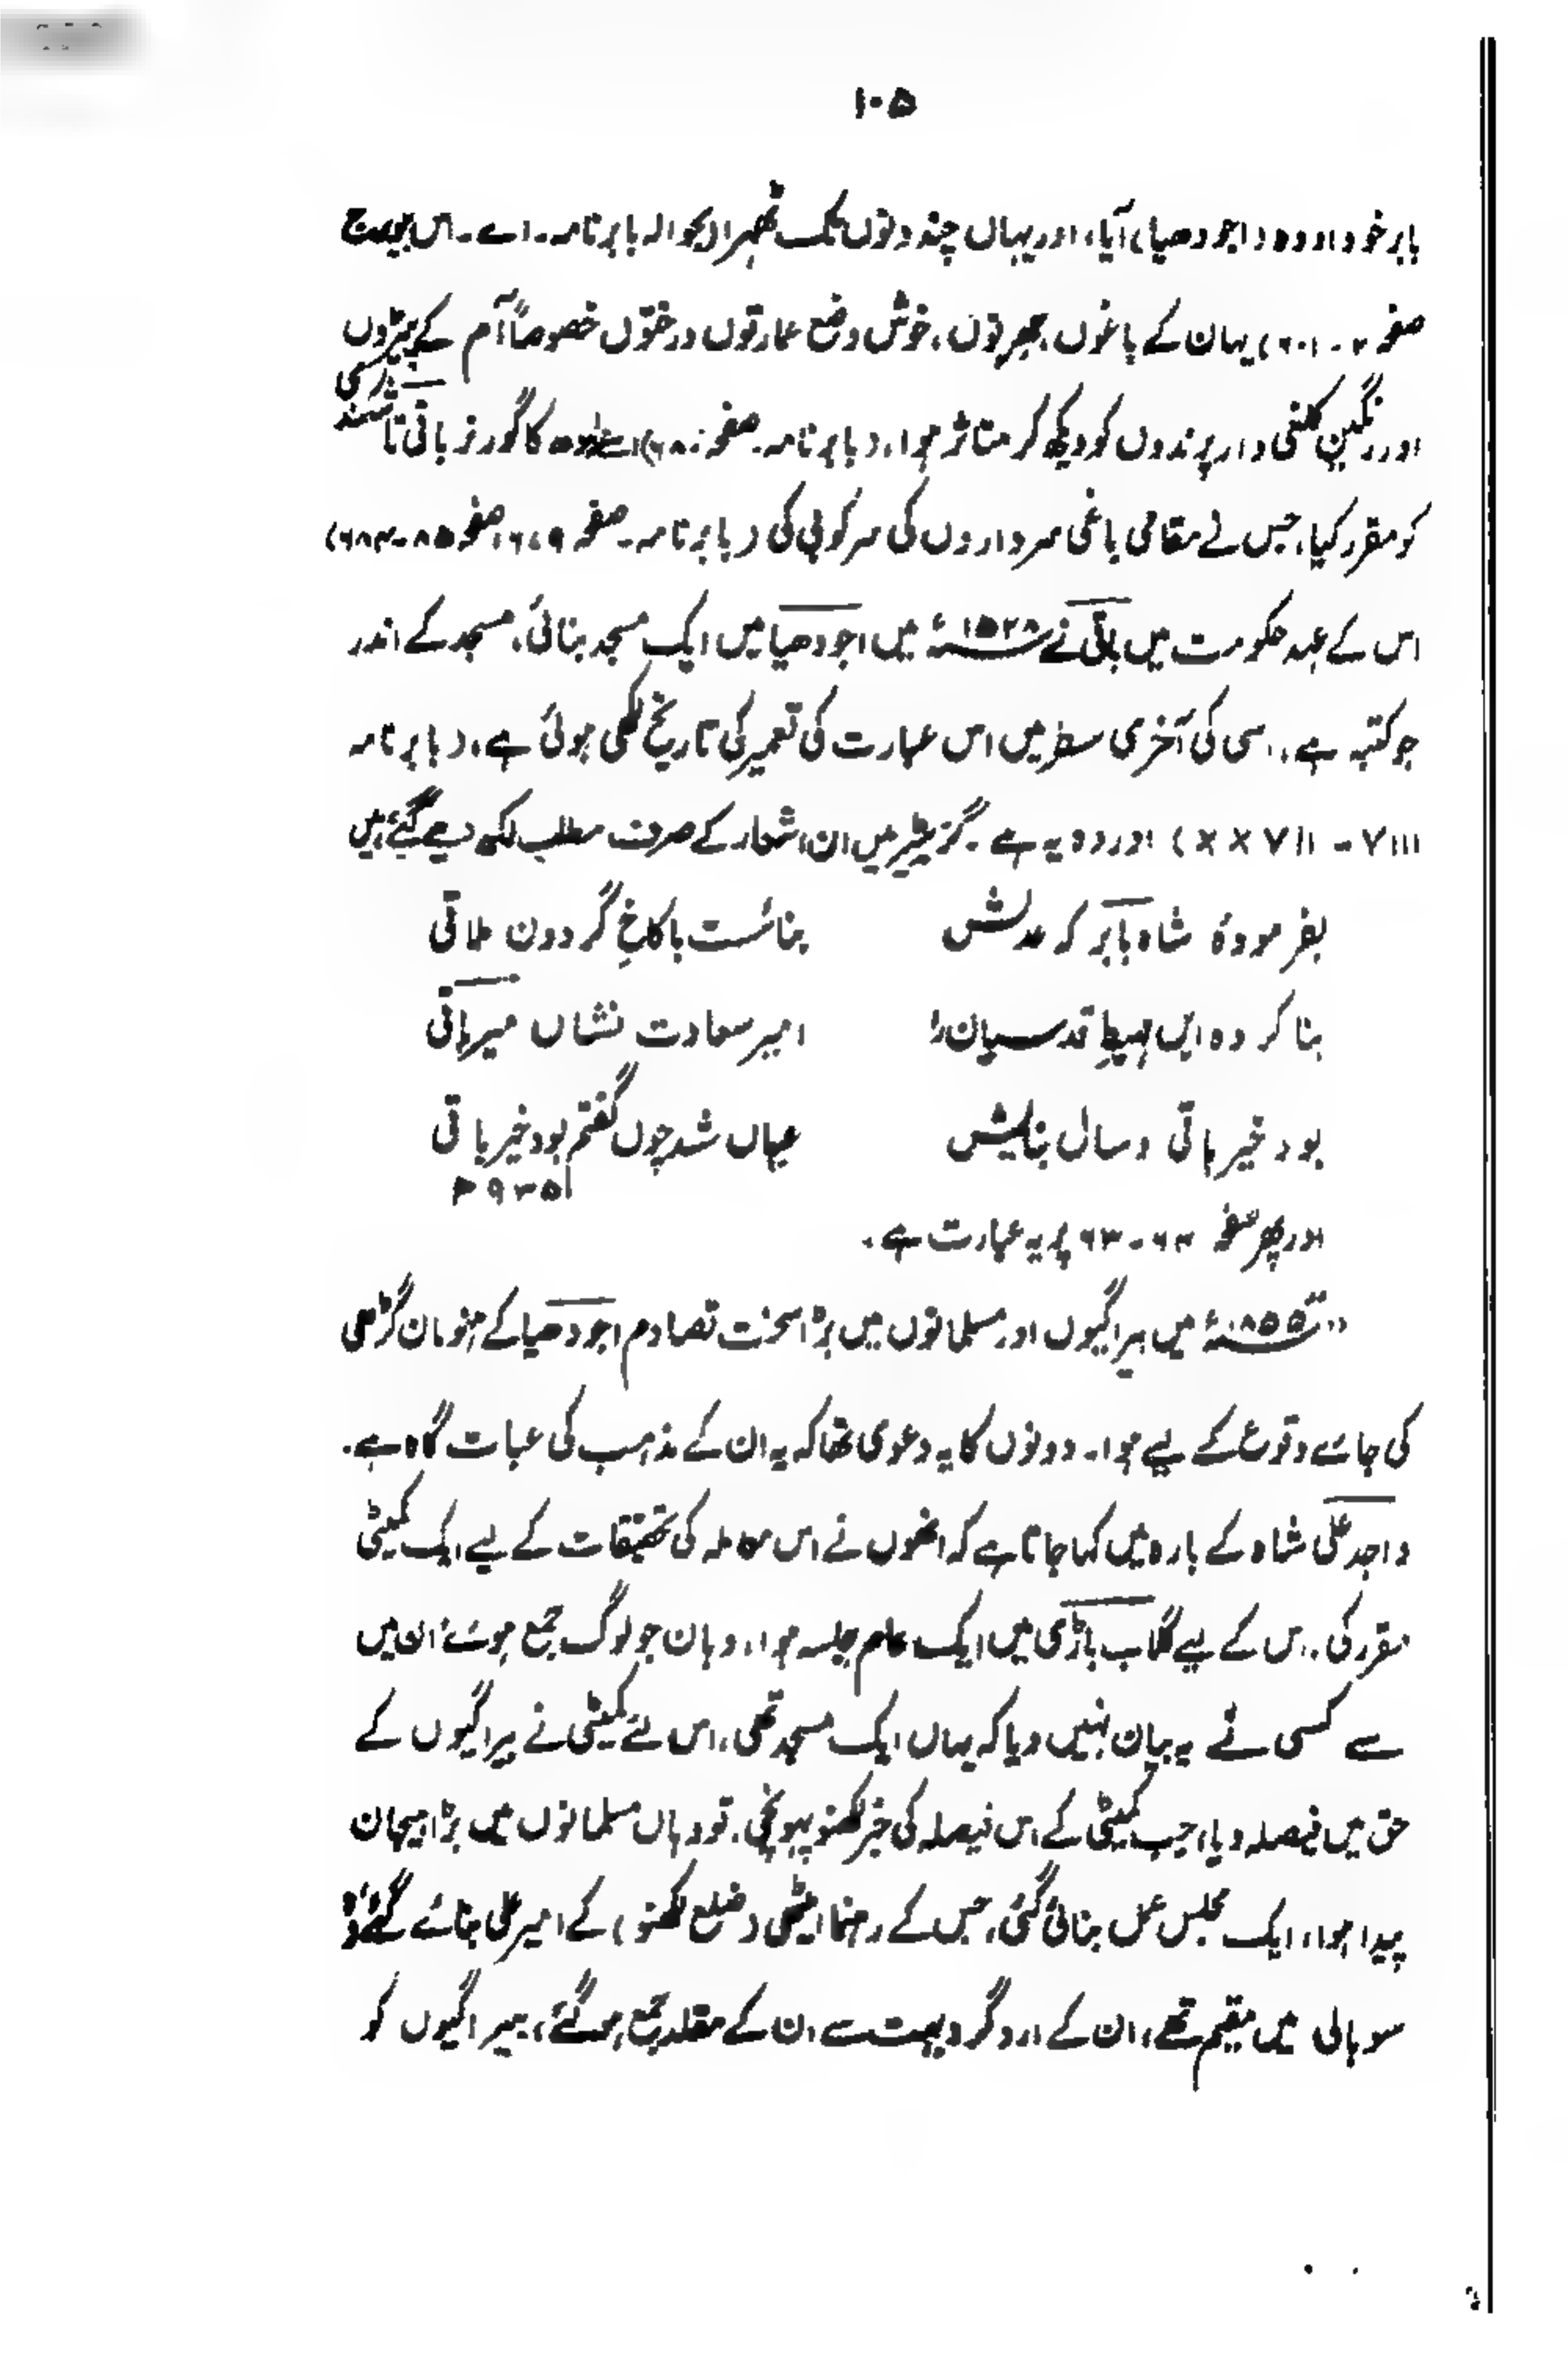 ۱۰۵
بابر خود اودہ (اجودھیا) آیا، اور یہاں چند دنوں تک ٹھہرا (بحوالہ بابرنامہ۔ اے۔ اس بیورج
صفحہ ۲-۶۰۱) یہان کے باغوں، جھرنوں، خوش وضع عمارتوں درختوں خصوصاً آم کے پیڑوں
اور رنگین کلغی دار پرندوں کو دیکھ کر متاثر ہوا، (بابرنامہ۔ صفحہ ۶۸۰) اسنے اودھ کا گورنر باقی تاشقندی
کو مقرر کیا، جس نے مقامی باغی سرداروں کی سرکوبی کی (بابرنامہ۔ صفحہ ۶۷۹، صفحہ ۸۵-۶۸۴)
اس کے عہد حکومت میں باقی نے ۱۵۲۸ء میں اجودھیا میں ایک مسجد بنائی، مسجد کے اندر
جو کتبہ ہے، اسی کی آخری سطر میں اس عبارت کی تعمیر کی تاریخ لکھی ہوئی ہے، (بابرنامہ
XXVII - VIII) اور وہ یہ ہے۔ گزیٹیر میں ان اشعار کے صرف مطلب لکھ دیے گئے ہیں
بفرمودۂ شاہ بابر کہ عدلش بنائست باکاخِ گردون ملاقی
بنا کردہ ایں مہبط قدسیان را امیر سعادت نشاں میر باقی
بود خیر باقی و سال بنائیش عیاں شد چوں گفتم بود خیر باقی
۹۳۵
اور پھر صفحہ ۶۴-۶۳ پر یہ عبارت ہے۔
"۱۸۵۵ء میں بیراگیوں اور مسلمانوں میں بڑا سخت تصادم اجودھیا کے ہنومان گڑھی
کی جائے وقوع کے لیے ہوا۔ دونوں کا یہ دعوی تھا کہ یہ ان کے مذہب کی عبات گاہ ہے۔
واجد علی شاہ کے بارہ میں کہا جاتا ہے کہ انھوں نے اس معاملہ کی تحقیقات کے لیے ایک کمیٹی
مقرر کی، اس کے لیے گلاب باڑی میں ایک عام جلسہ ہوا، وہان جو لوگ جمع ہوئے ان میں
سے کسی نے یہ بیان نہیں دیا کہ یہاں ایک مسجد تھی، اس لئے کمیٹی نے بیراگیوں کے
حق میں فیصلہ دیا، جب کمیٹی کے اس فیصلہ کی خبر لکھنؤ پہونچی، تو وہاں مسلمانوں میں بڑا ہیجان
پیدا ہوا، ایک مجلس عمل بنائی گئی، جس کے رہنما امیٹھی (ضلع لکھنؤ) کے امیر علی بنائے گئے،
سوہالی میں مقیم تھے، ان کے ارد گرد بہت سے ان کے مقلد جمع ہو گئے، بیراگیوں کو